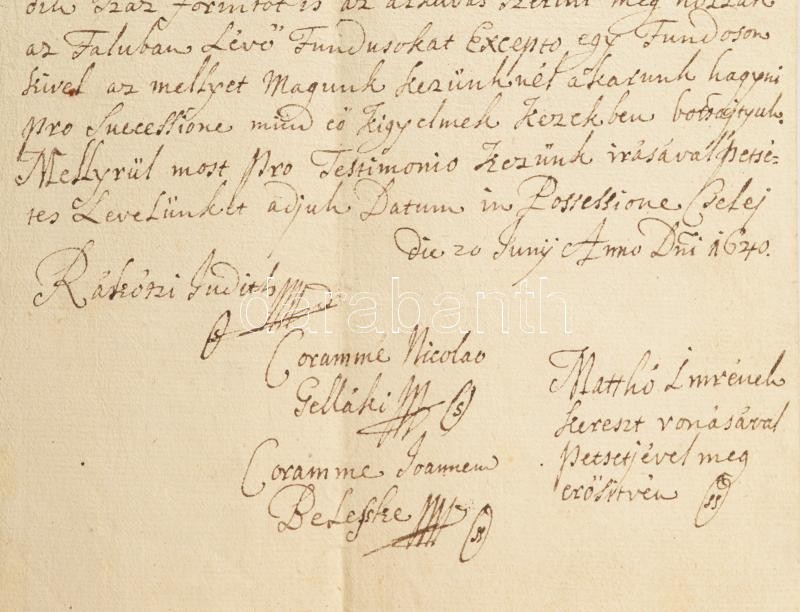 száz forintot is az alkuvás szerint meg hozzák
az Faluban Lévő Fundusokat Excepto egy Fundoson
kivel az mellyet Magunk kezünknél akarunk hagyni
pro Successione mind eö kigyelmek kezekben botsajtyuk.
Mellyrül most pro Testimonio kezünk irásával petsé-
tes Levelünket adjuk Datum in Possessione Cselej
die 20 Junij Anno Dñi 1640.
Rákóczi Judith
darabanth
Coramme Nicolao
Gelláki (S)
Coramme Joannem
Belepke
Matthó Imrének
kereszt vonásával
petsetjével meg
erősitvén